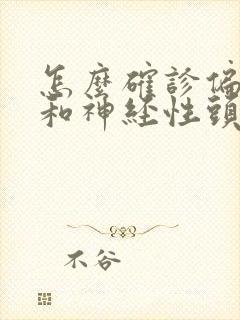 怎麼確診偏
和神經性頭
不谷